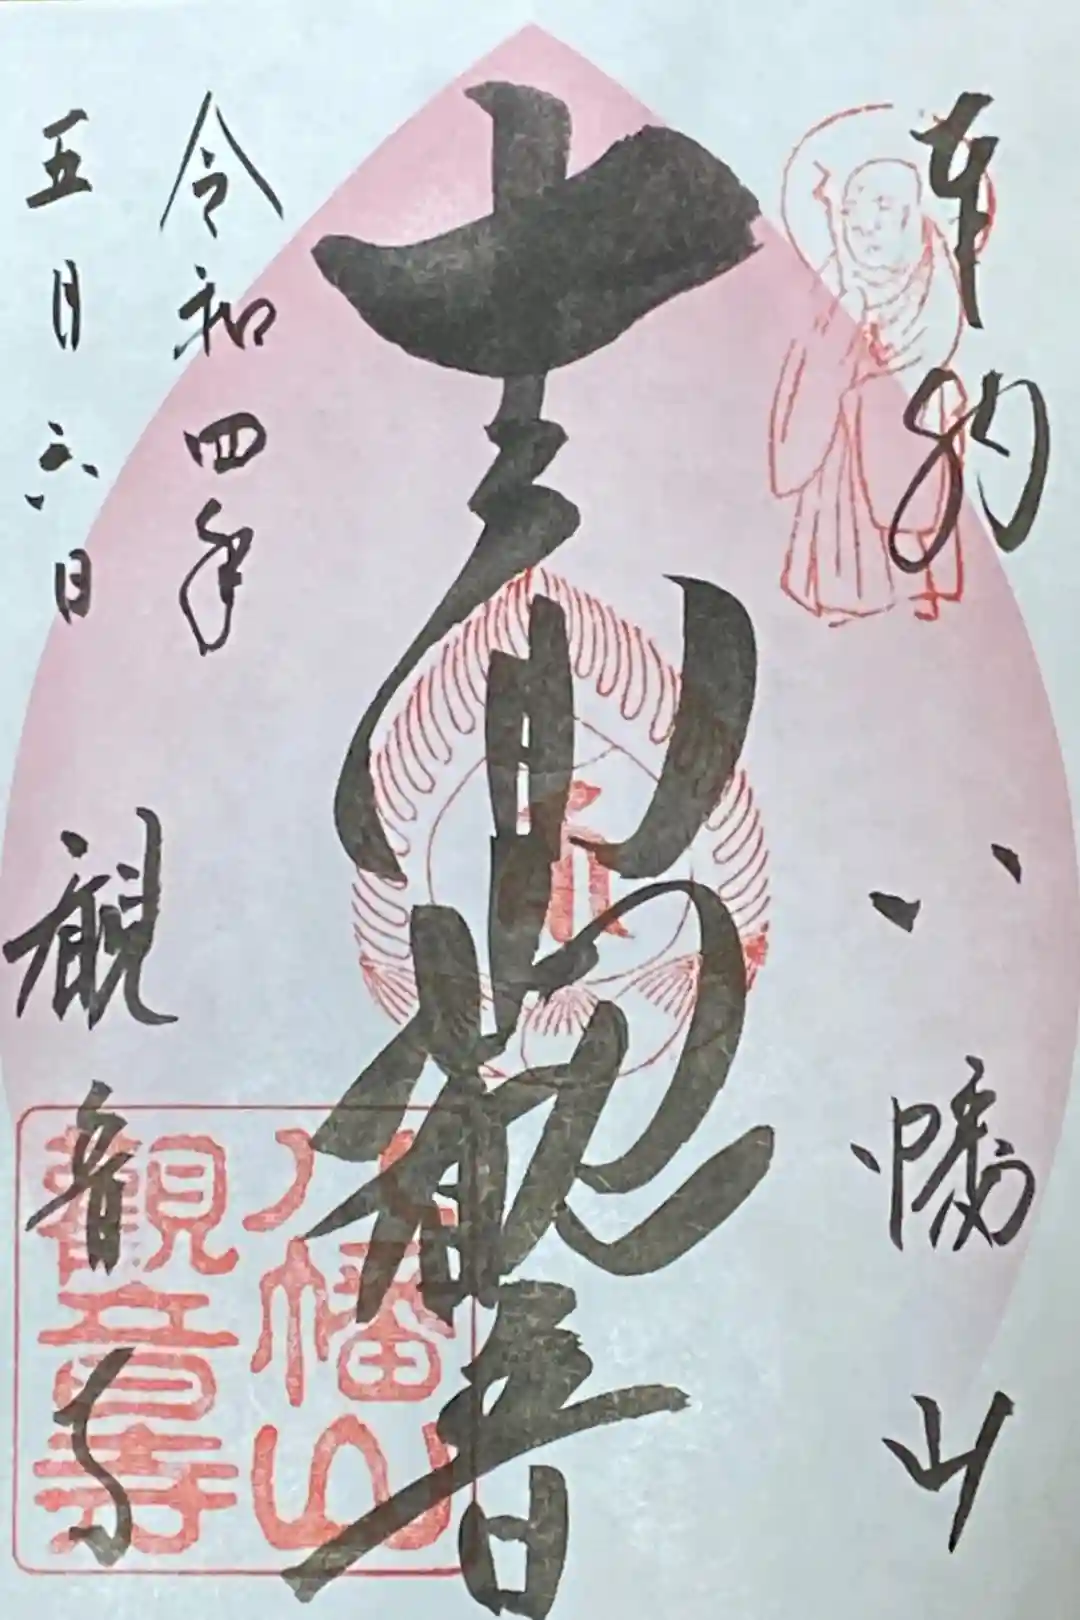 奉拝
八幡山
十一面観音
令和四年
五月六日
観音寺
八幡山
觀音寺